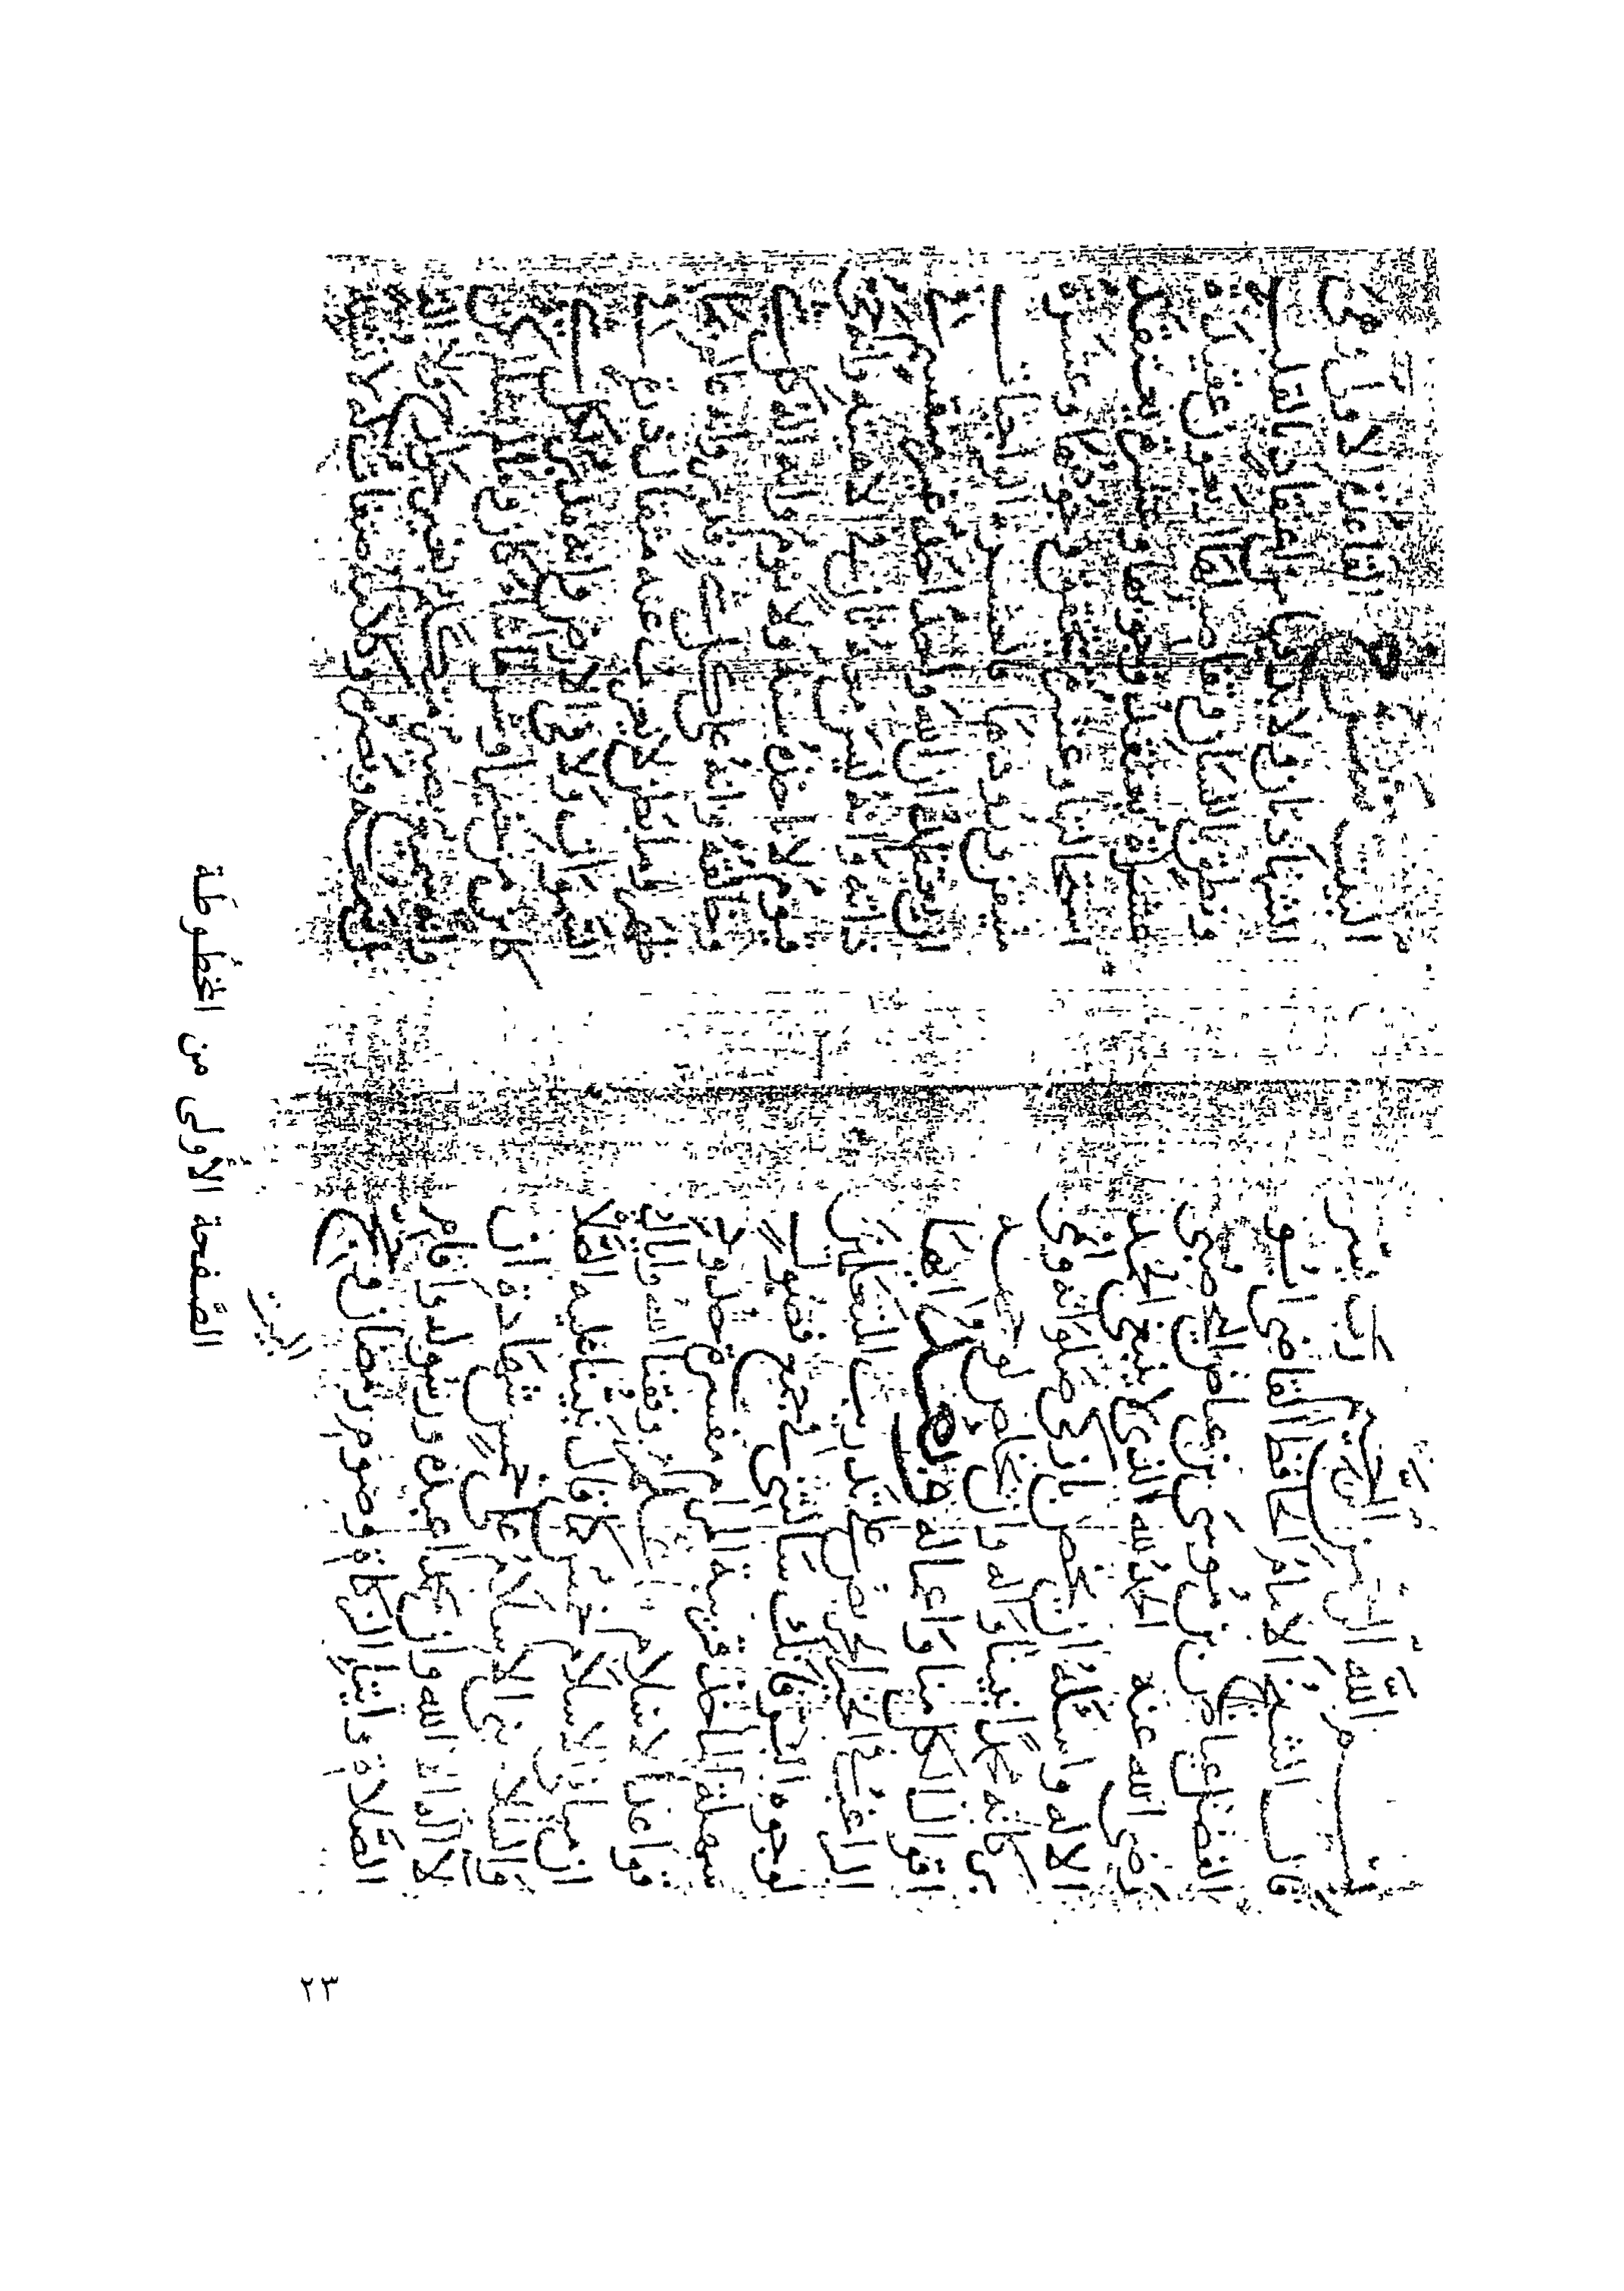 بسم الله الرحمن الرحيم
قال الشيخ الامام الحافظ القاضي ابو
الفضل عياض بن موسى بن عياض اليحصبي
رضي الله عنه الحمد لله الذي لا ينبغي الحمد
الا له واسئله ان يخص بازكى صلواته
بركاته محمدا نبينا وآله وان يخلص لوجهه
اقوالنا كلنا واعماله ايها
الراغب في الخير الحريص على تدريب المتعلمين
لوجوه البر فانك سالتني في جمع فصول
سهلة الماخذ قريبة المرام مفسرة حدود
قواعد الاسلام وفقنا الله واياك
ان مباني الاسلام خمس كما قال نبينا عليه
بني الاسلام على خمس شهادة ان
لا اله الا الله وان محمدا عبده ورسوله واقام
الصلاة وايتاء الزكاة وصوم رمضان وحج
البيت
القاعدة الاولى وهي
الشهادتان ولابد من اعتقادها بالقلب
ونطق اللسان وتفاصيلها اربعون عقيدة
عشرة يعتقد وجوبها وعشرة يعتقد
استحالتها وعشرة يتحقق وجودها وعشرة
متيقن ورودها فالعشر الواجبات
ان يعتقد ان الله واحد احد غير منقسم في
ذاته وانه ليس معه ثان في الالهية وانه حي
قيوم لا تاخذه سنة ولا نوم وانه اله كل
وخالقه وانه على كل شيء قدير وانه عالم بما
ظهر وما بطن لا يعزب عنه مثقال ذرة في
السموات ولا في الارض وانه مريد لكل
كاين من خير او شر ما شاء كان وما لم يشا لم يكن
وانه سميع بصير متكلم بغير جارحة ولا آلة
بل سمعه وبصره وكلامه صفات له لا تشبه
الصّفحة الأولى من المخطُوطَة
٢٣